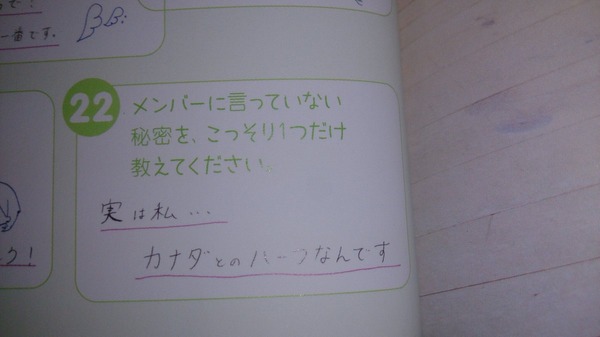 で!
一番です。
22
メンバーに言っていない
秘密を、こっそり1つだけ
教えてください。
実は私…
カナダとのハーフなんです
ク!